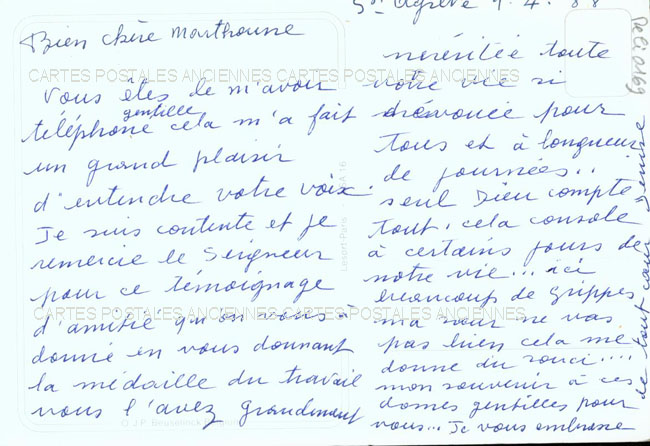 St Agrève 9.4.88
Bien chère Marthoune
Vous êtes de m'avoir
gentille
téléphoné cela m'a fait
un grand plaisir
d'entendre votre voix.
Je suis contente et je
remercie le Seigneur
pour ce témoignage
d'amitié qu'on vous à
donné en vous donnant
la médaille du travail
vous l'avez grandement
méritée toute
votre vie si
dévouée pour
tous et à longueur
de journées..
seul Dieu compte
tout, cela console
à certains jours de
notre vie... ici
beaucoup de grippes
ma sœur ne vas
pas bien cela me
donne du souci....
mon souvenir à ces
dames gentilles pour
vous... Je vous embrasse
de tout cœur Denise
CARTES POSTALES ANCIENNES CARTES POSTALES ANCIENNES
CARTES POSTALES ANCIENNES CARTES POSTALES ANCIENNES